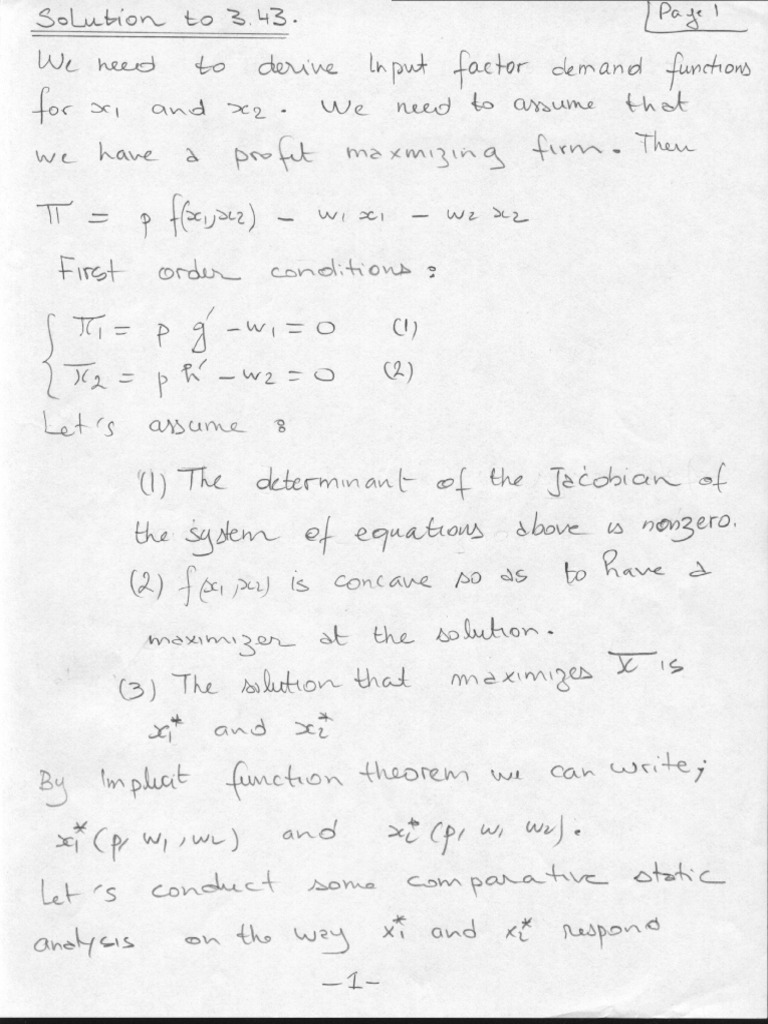 Solution to 3.43.
Page 1
We need to derive Input factor demand functions
for x1 and x2. We need to assume that
we have a profit maxmizing firm. Then
π = p f(x1,x2) - w1 x1 - w2 x2
First order conditions :
π1 = p g' - w1 = 0 (1)
π2 = p h' - w2 = 0 (2)
Let's assume :
(1) The determinant of the Jacobian of
the system of equations above is nonzero.
(2) f(x1,x2) is concave so as to have a
maximizer at the solution.
(3) The solution that maximizes π is
x1* and x2*
By Implicit function theorem we can write;
x1*(p, w1, w2) and x2*(p, w1 w2).
Let's conduct some comparative static
analysis on the way x1* and x2* respond
-1-